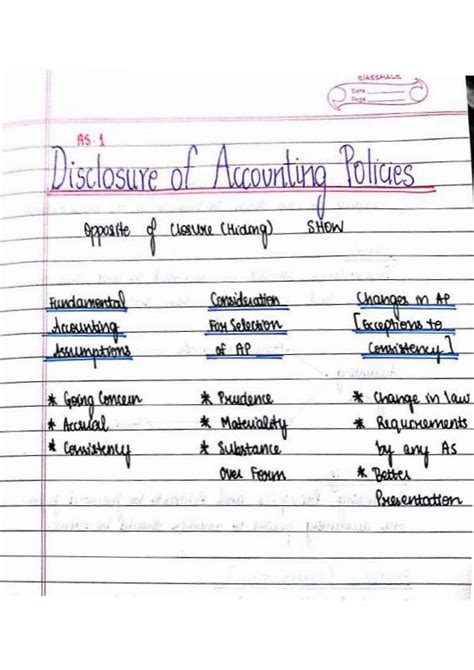 CLASSMATE
Date
Page
AS-1
Disclosure of Accounting Policies
Opposite of Closure (Hiding) SHOW
Fundamental Accounting Assumptions
* Going Concern
* Accrual
* Consistency
Consideration For Selection of AP
* Prudence
* Materiality
* Substance Over Form
Changes in AP [Exceptions to Consistency]
* Change in law
* Requirements by any AS
* Better Presentation